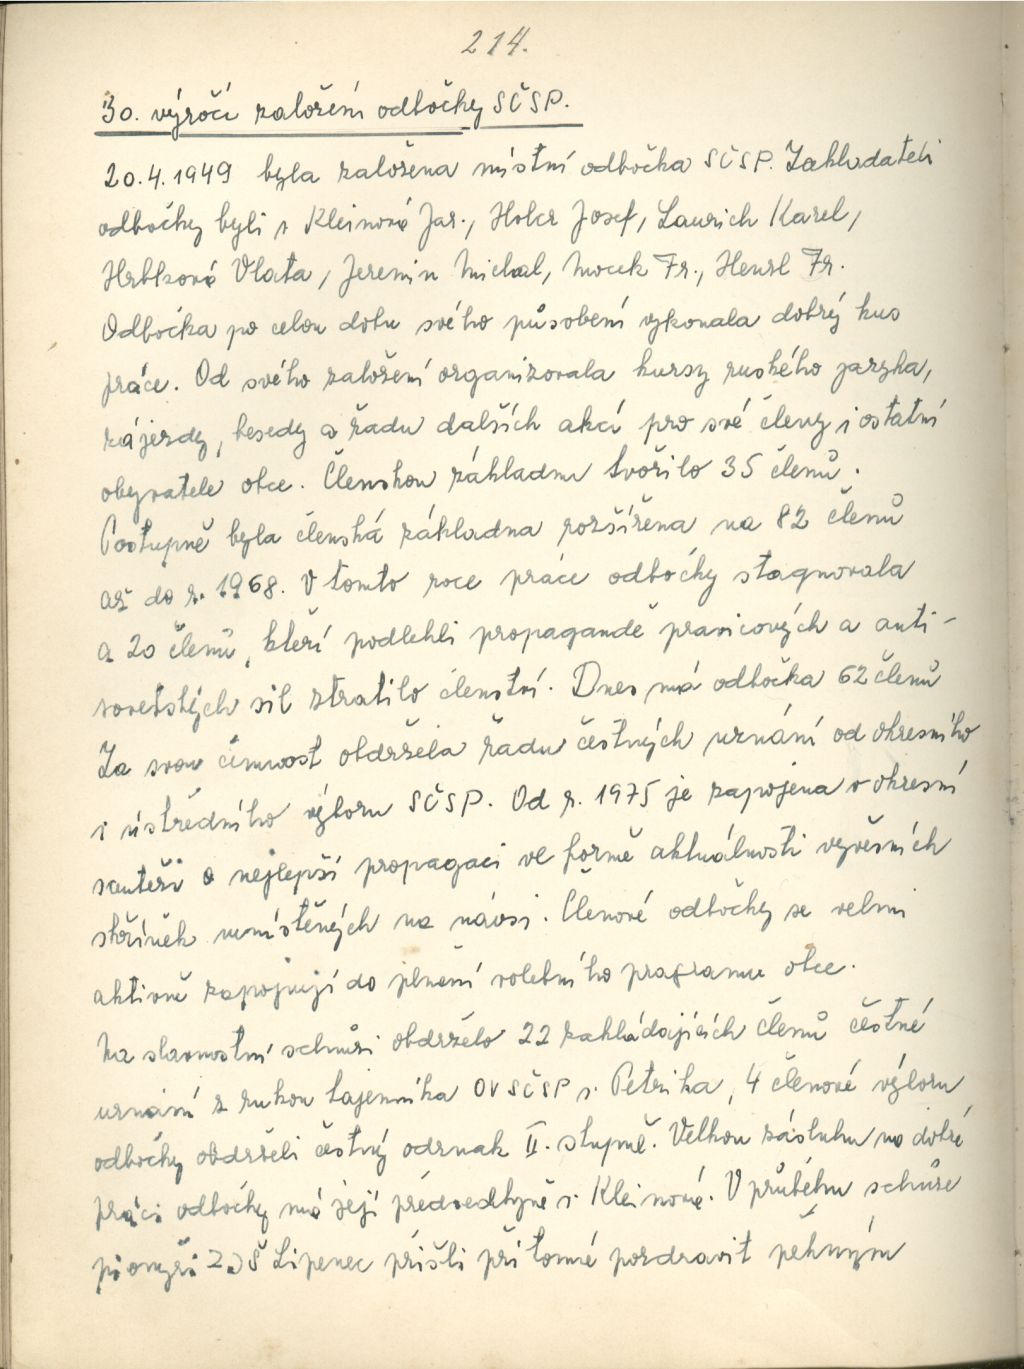 214.
30. výročí založení odbočky SČSP.
20.4.1949 byla založena místní odbočka SČSP. Zakladateli
odbočky byli s Kleinová Jar., Holer Josef, Laurich Karel,
Hrbková Vlasta, Jeremin Michal, Mocek Fr., Henzl Fr.
Odbočka po celou dobu svého působení vykonala dobrý kus
práce. Od svého založení organizovala kursy ruského jazyka,
zájezdy, besedy a řadu dalších akcí pro své členy i ostatní
obyvatele obce. Členskou základnu tvořilo 35 členů.
Postupně byla členská základna rozšířena na 82 členů
až do r. 1968. V tomto roce práce odbočky stagnovala
a 20 členů, kteří podlehli propagandě pravicových a anti-
sovětských sil ztratilo členství. Dnes má odbočka 62 členů
Za svou činnost obdržela řadu čestných uznání od okresního
i ústředního výboru SČSP. Od r. 1975 je zapojena v okresní
soutěži o nejlepší propagaci ve formě aktuálnosti vývěsních
skříněk umístěných na návsi. Členové odbočky se velmi
aktivně zapojují do plnění volebního programu obce.
Na slavnostní schůzi obdrželo 22 zakládajících členů čestné
uznání z rukou tajemníka OV SČSP s. Petrika, 4 členové výboru
odbočky obdrželi čestný odznak II. stupně. Velkou zásluhu na dobré
práci odbočky má její předsedkyně s. Kleinová. V průběhu schůze
pionýři ZDŠ Lipenec přišli přítomné pozdravit pěkným